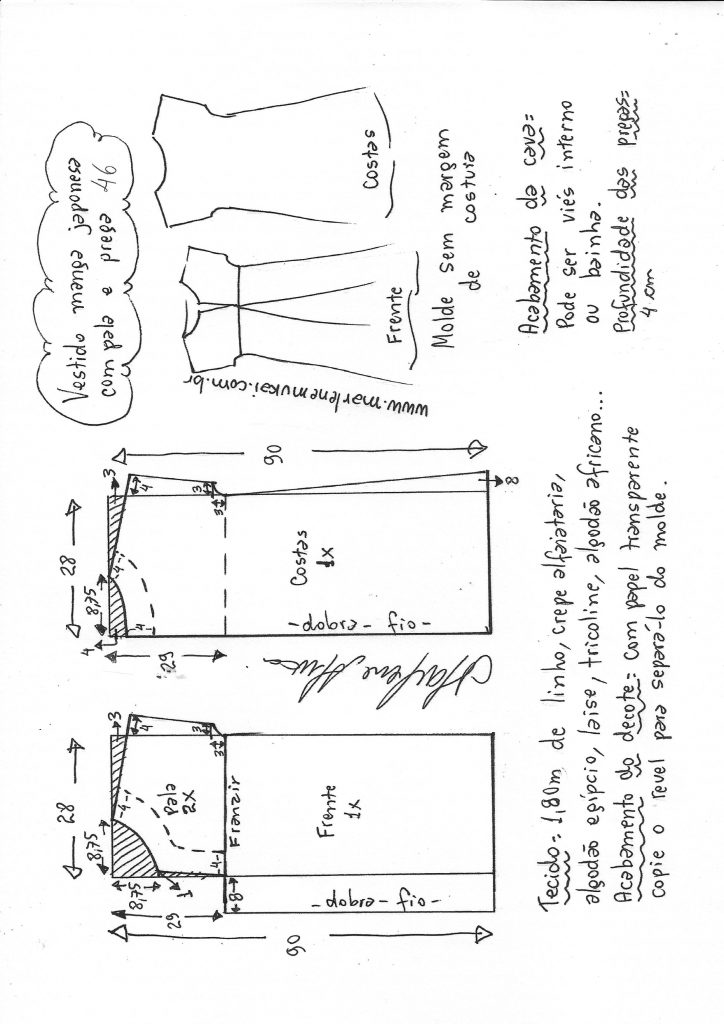 Vestido manga japonesa
com pala e prega 46
Costas
Frente
www.marlenemukai.com.br
Molde sem margem
de costura
Acabamento da cava:
Pode ser viés interno
ou bainha.
Profundidade das pregas:
4 cm
28
8,75
8,75
1
3
4
4
3
3
29
Pala
2x
4
8
Franzir
Frente
1x
-dobra-fio-
90
28
8,75
4
4
4
3
4
3
3
29
90
Costas
1x
-dobra-fio-
8
Marlene Mukai
Tecido: 1,80m de linho, crepe alfaiataria,
algodão egípcio, laise, tricoline, algodão africano...
Acabamento do decote: com papel transparente
copie o revel para separa-lo do molde.